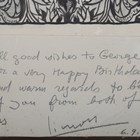 ll good wishes to George
a very Happy Birthday
d warm regards to
Jan from both of
us
Simon